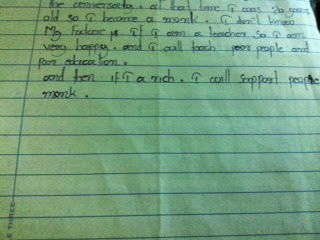 the conversation. at that time I was 20 years
old so I become a monk. I don't know
My Future is If I am a teacher so I am
very happy. and I will teach poor people and
poor education.
and then if I a rich. I will support people
monk.
E THREE